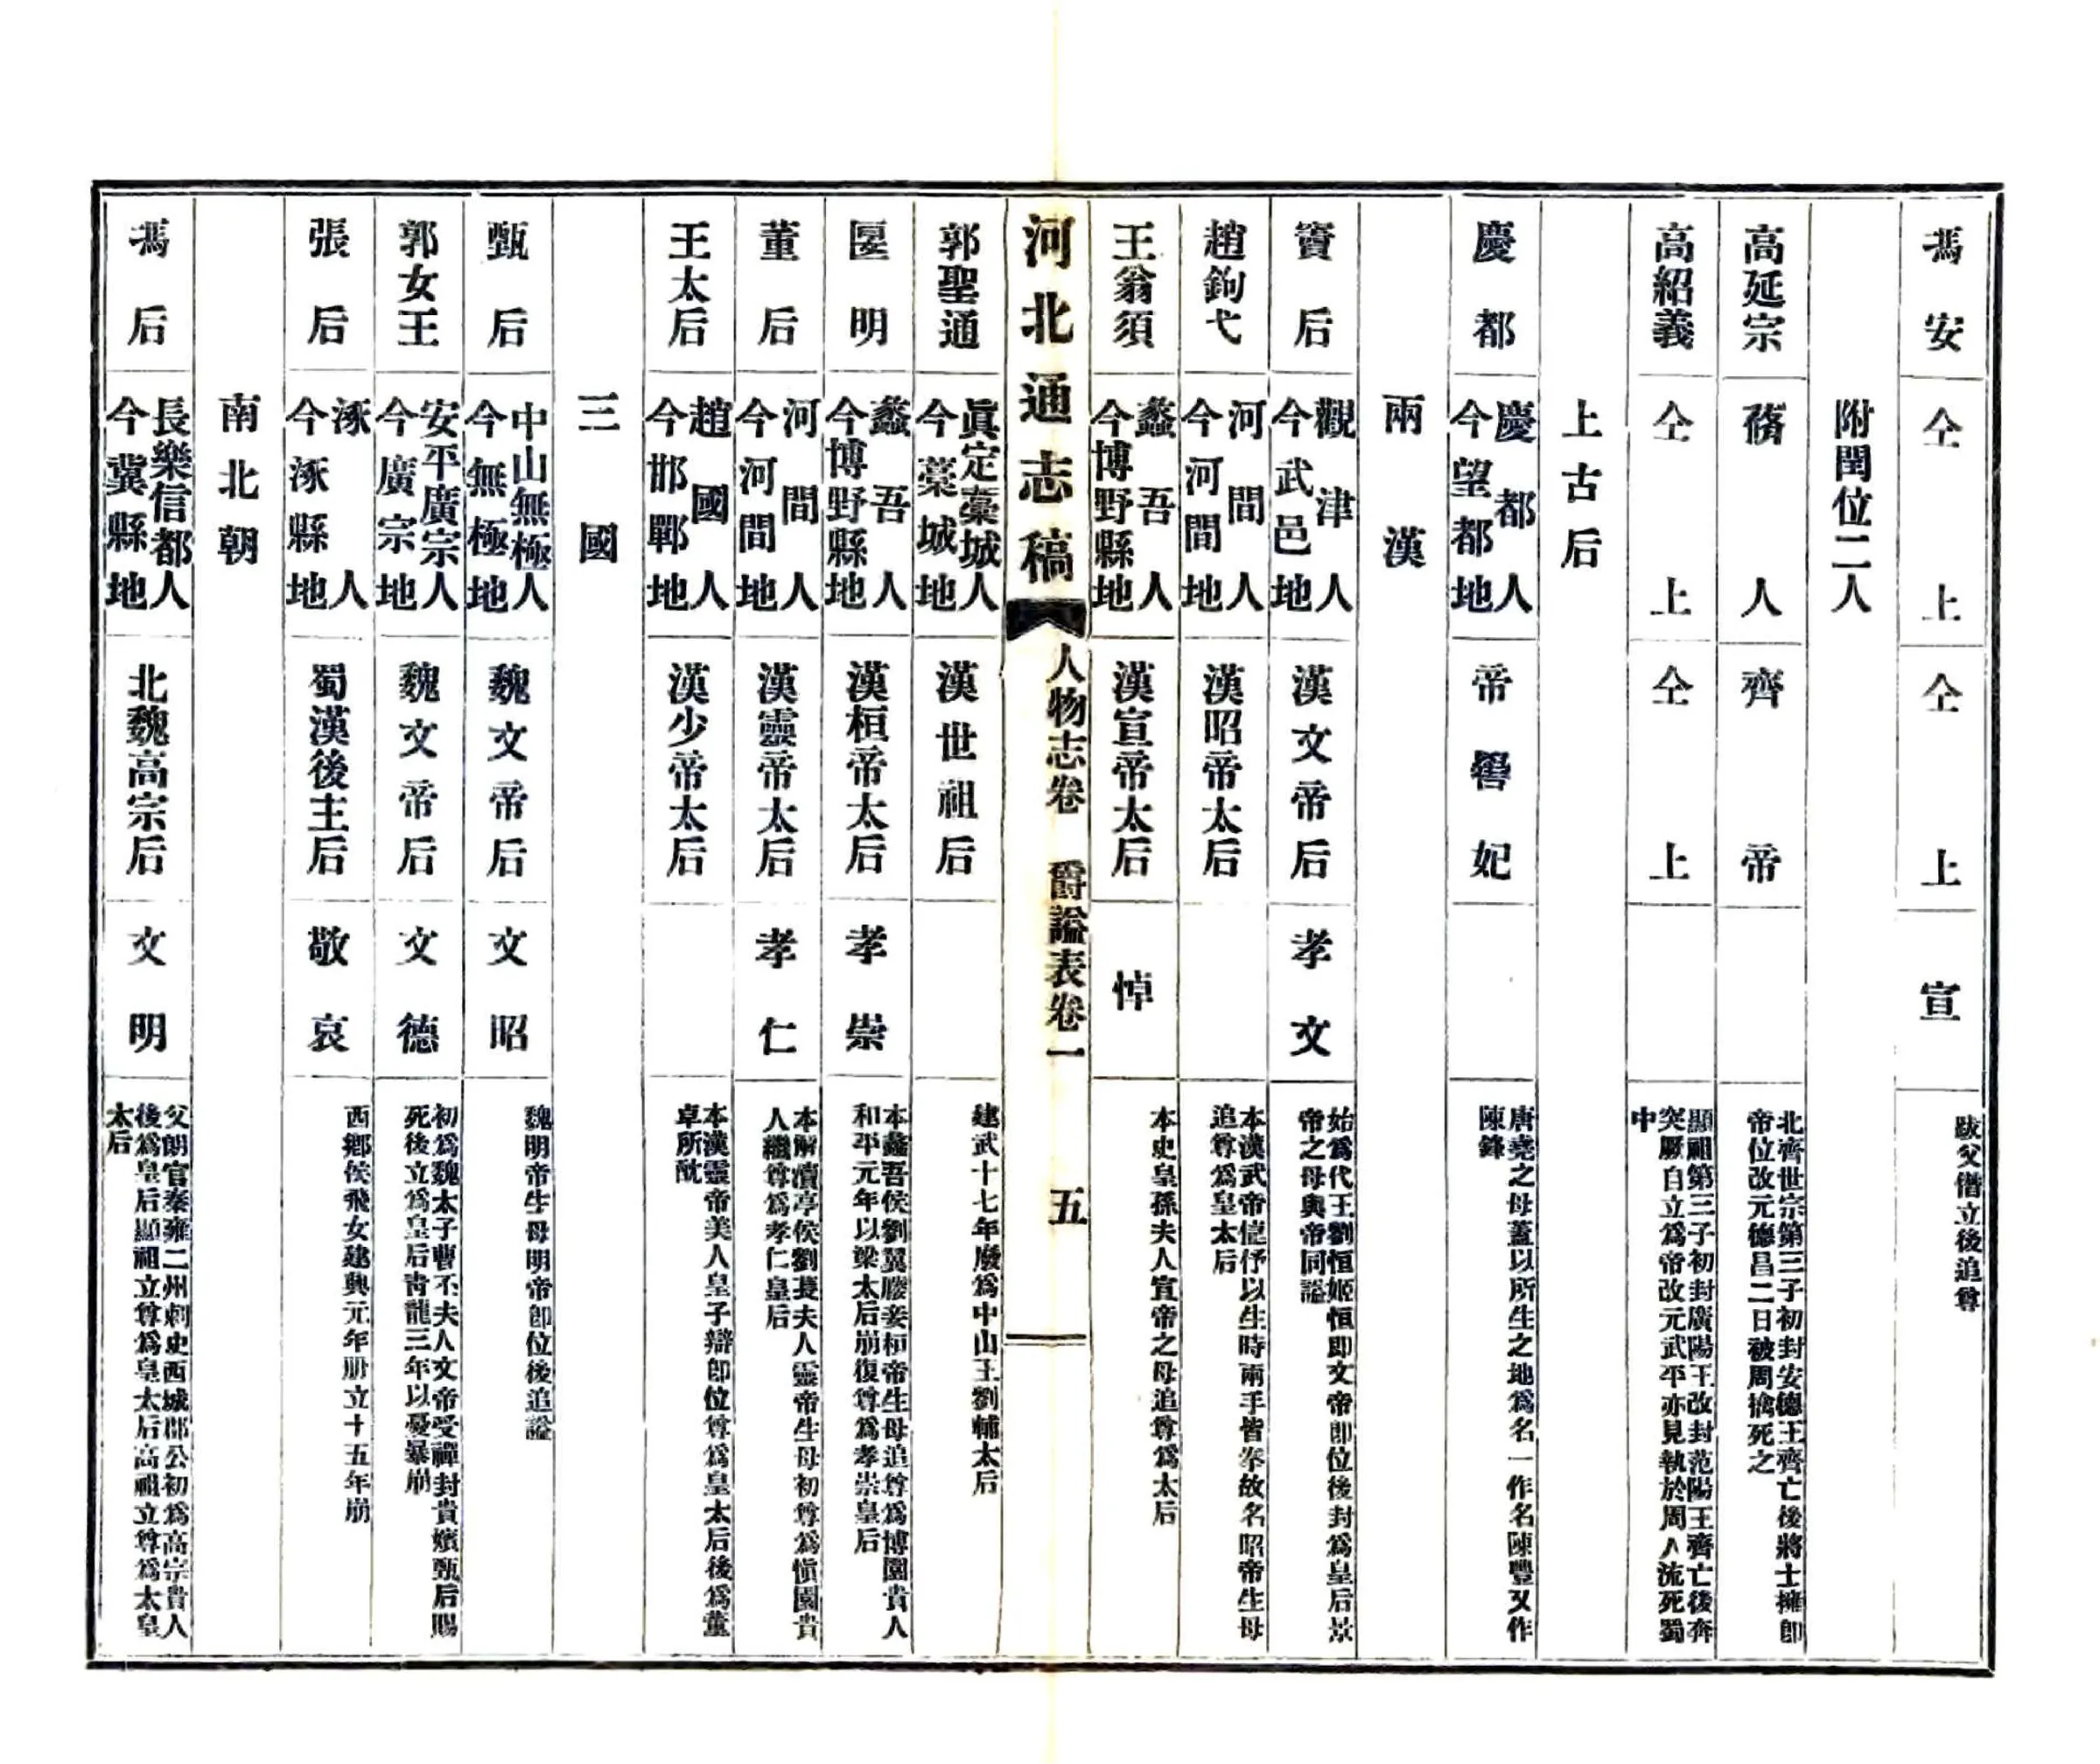 馮安　仝上　仝上　宣　跋父僭立後追尊
附閏位二人
高延宗　蓨人　齊帝　北齊世宗第三子初封安德王齊亡後將士擁卽
帝位改元德昌二日被周擒死之
高紹義　仝上　仝上　顯祖第三子初封廣陽王改封范陽王齊亡後奔
突厥自立爲帝改元武平亦見執於周人流死蜀
中
上古后
慶都　慶都人
今望都地　帝嚳妃　唐堯之母蓋以所生之地爲名一作名陳豐又作
陳鋒
兩漢
竇后　觀津人
今武邑地　漢文帝后　孝文　始爲代王劉恒姬恒即文帝卽位後封爲皇后景
帝之母與帝同諡
趙鉤弋　河間人
今河間地　漢昭帝太后　本漢武帝倢伃以生時兩手皆拳故名昭帝生母
追尊爲皇太后
王翁須　蠡吾人
今博野縣地　漢宣帝太后　悼　本史皇孫夫人宣帝之母追尊爲太后
河北通志稿　人物志卷　爵諡表卷一　五
郭聖通　眞定藁城人
今藁城地　漢世祖后　建武十七年廢爲中山王劉輔太后
匽明　蠡吾人
今博野縣地　漢桓帝太后　孝崇　本蠡吾侯劉翼媵妾桓帝生母追尊爲博園貴人
和平元年以梁太后崩復尊爲孝崇皇后
董后　河間人
今河間地　漢靈帝太后　孝仁　本解瀆亭侯劉萇夫人靈帝生母初尊爲愼園貴
人繼尊爲孝仁皇后
王太后　趙國人
今邯鄲地　漢少帝太后　本漢靈帝美人皇子辯卽位尊爲皇太后後爲董
卓所酖
三國
甄后　中山無極人
今無極地　魏文帝后　文昭　魏明帝生母明帝卽位後追諡
郭女王　安平廣宗人
今廣宗地　魏文帝后　文德　初爲魏太子曹丕夫人文帝受禪封貴嬪甄后賜
死後立爲皇后靑龍三年以憂暴崩
張后　涿人
今涿縣地　蜀漢後主后　敬哀　西鄕侯飛女建興元年册立十五年崩
南北朝
馮后　長樂信都人
今冀縣地　北魏高宗后　文明　父朗官秦雍二州刺史西城郡公初爲高宗貴人
後爲皇后顯祖立尊爲皇太后高祖立尊爲太皇
太后